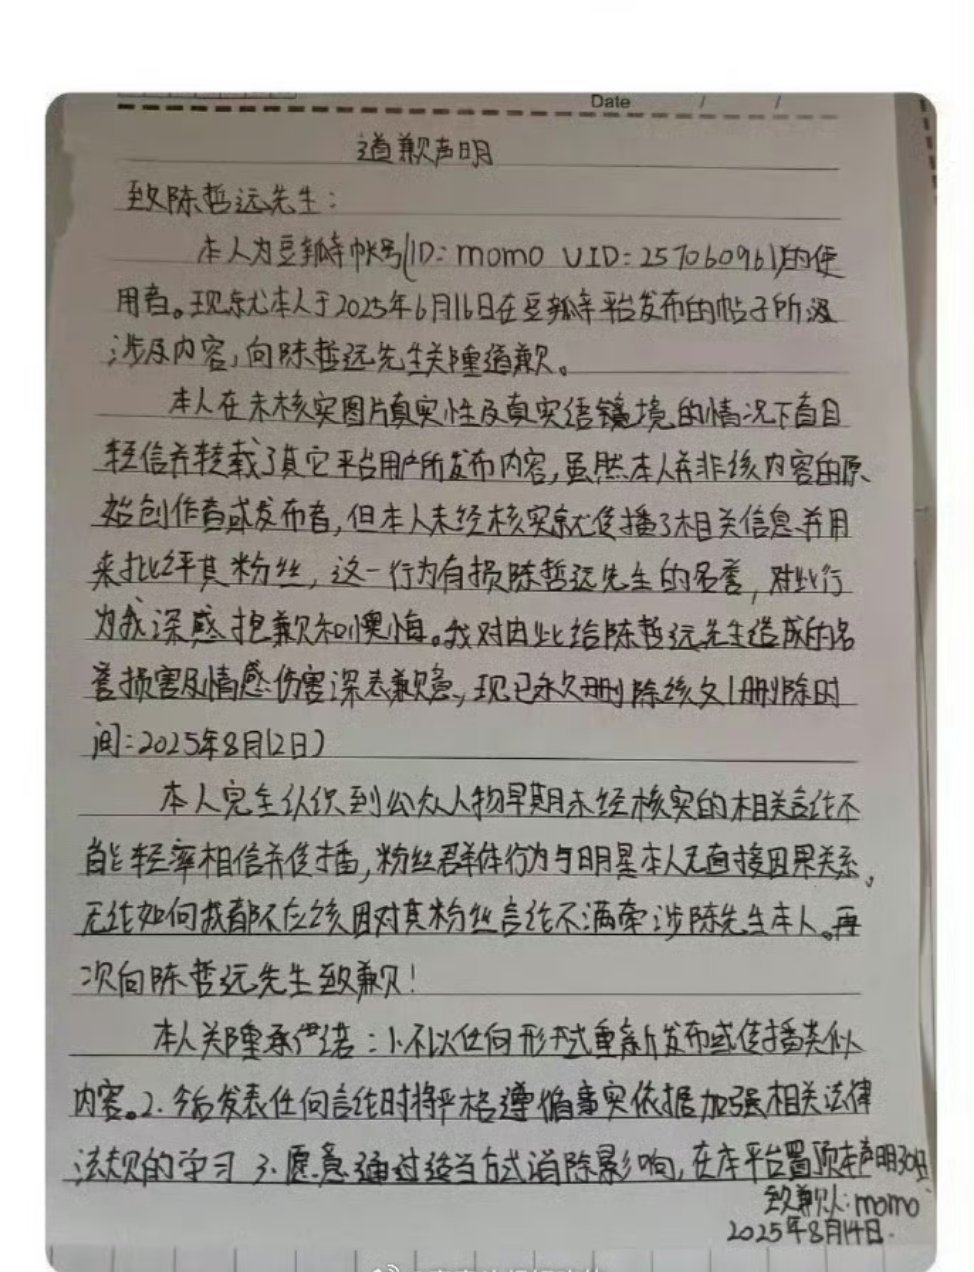 Date / /
道歉声明
致陈哲远先生：
本人为豆瓣帐号(ID: momo UID: 257060961)的使
用者。现就本人于2025年6月16日在豆瓣平台发布的帖子所
涉及内容，向陈哲远先生郑重道歉。
本人在未核实图片真实性及真实语境的情况下盲目
轻信并转载了其它平台用户所发布内容，虽然本人并非该内容的原
始创作者或发布者，但本人未经核实就传播了相关信息并用
来批评其粉丝，这一行为有损陈哲远先生的名誉，对此行
为我深感抱歉和懊悔。我对因此给陈哲远先生造成的名
誉损害及情感伤害深表歉意，现已永久删除该文(删除时
间：2025年8月12日)
本人完全认识到公众人物早期未经核实的相关言论不
能轻率相信并传播，粉丝群体行为与明星本人无直接因果关系，
无论如何我都不应该因对其粉丝言论不满牵涉陈先生本人。再
次向陈哲远先生致歉！
本人郑重承诺：1.不以任何形式重新发布或传播类似
内容。2.今后发表任何言论时将严格遵循事实依据加强相关法律
法规的学习 3.愿意通过适当方式消除影响，在本平台置顶本声明30日
致歉人：momo
2025年8月14日.